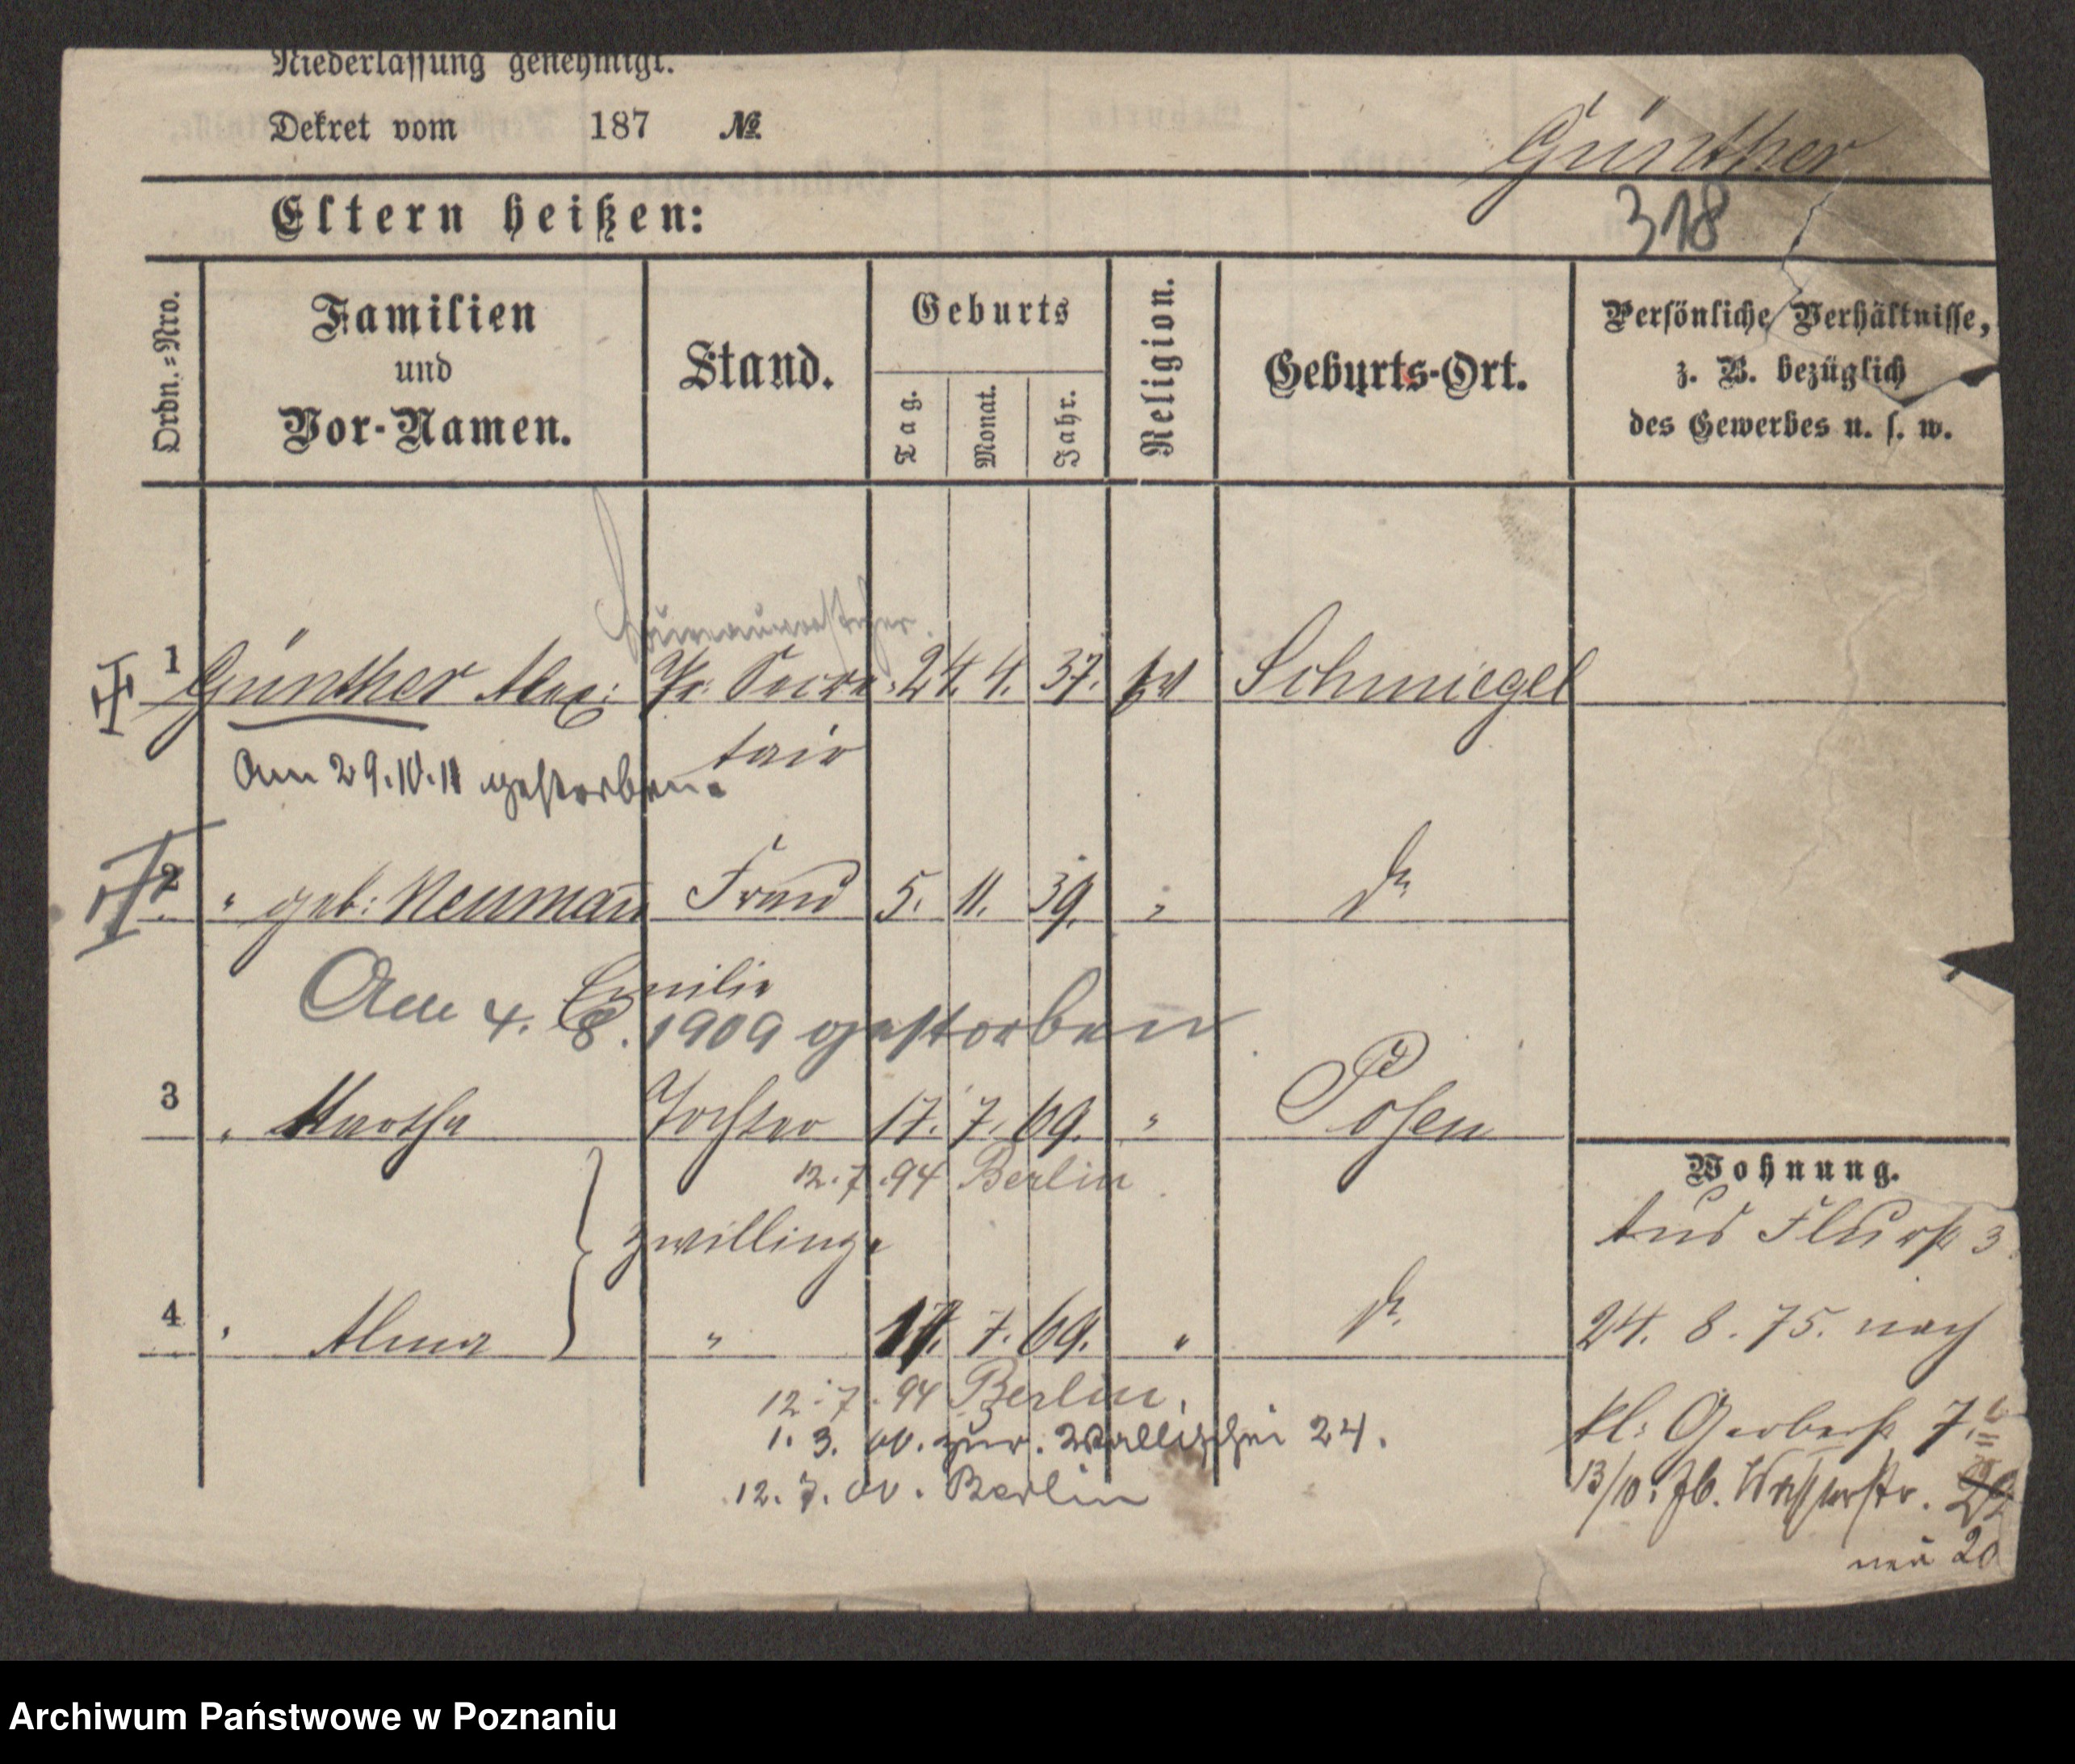 Niederlassung genehmigt.
Dekret vom 187 №
Günther
318
Eltern heißen:
Ordn.=Nro.
Familien
und
Vor-Namen.
Stand.
Geburts
Tag.
Monat.
Jahr.
Religion.
Geburts-Ort.
Persönliche Verhältnisse,
z. B. bezüglich
des Gewerbes u. s. w.
Büreauvorsteher.
1 Günther Alex: Pr: Secre- 24. 4. 37. Schmiegel
tair
Am 29.10.11 gestorben.
2 " geb: Neumann Frau 5. 11. 39. " do
Emilie
Am 4. 8. 1909 gestorben
3 " Martha Tochter 17. 7. 69. " Posen
12.7.94 Berlin
Zwillinge
4 " Alma " 17. 7. 69. " do
12.7.94 Berlin.
1. 3. 00. zur. Wallischei 24.
12. 7. 00. Berlin
Wohnung.
Flurst 3
24. 8. 75. nach
kl: Gerberst 7.
13/10. 76. Wasserstr.
neu 20